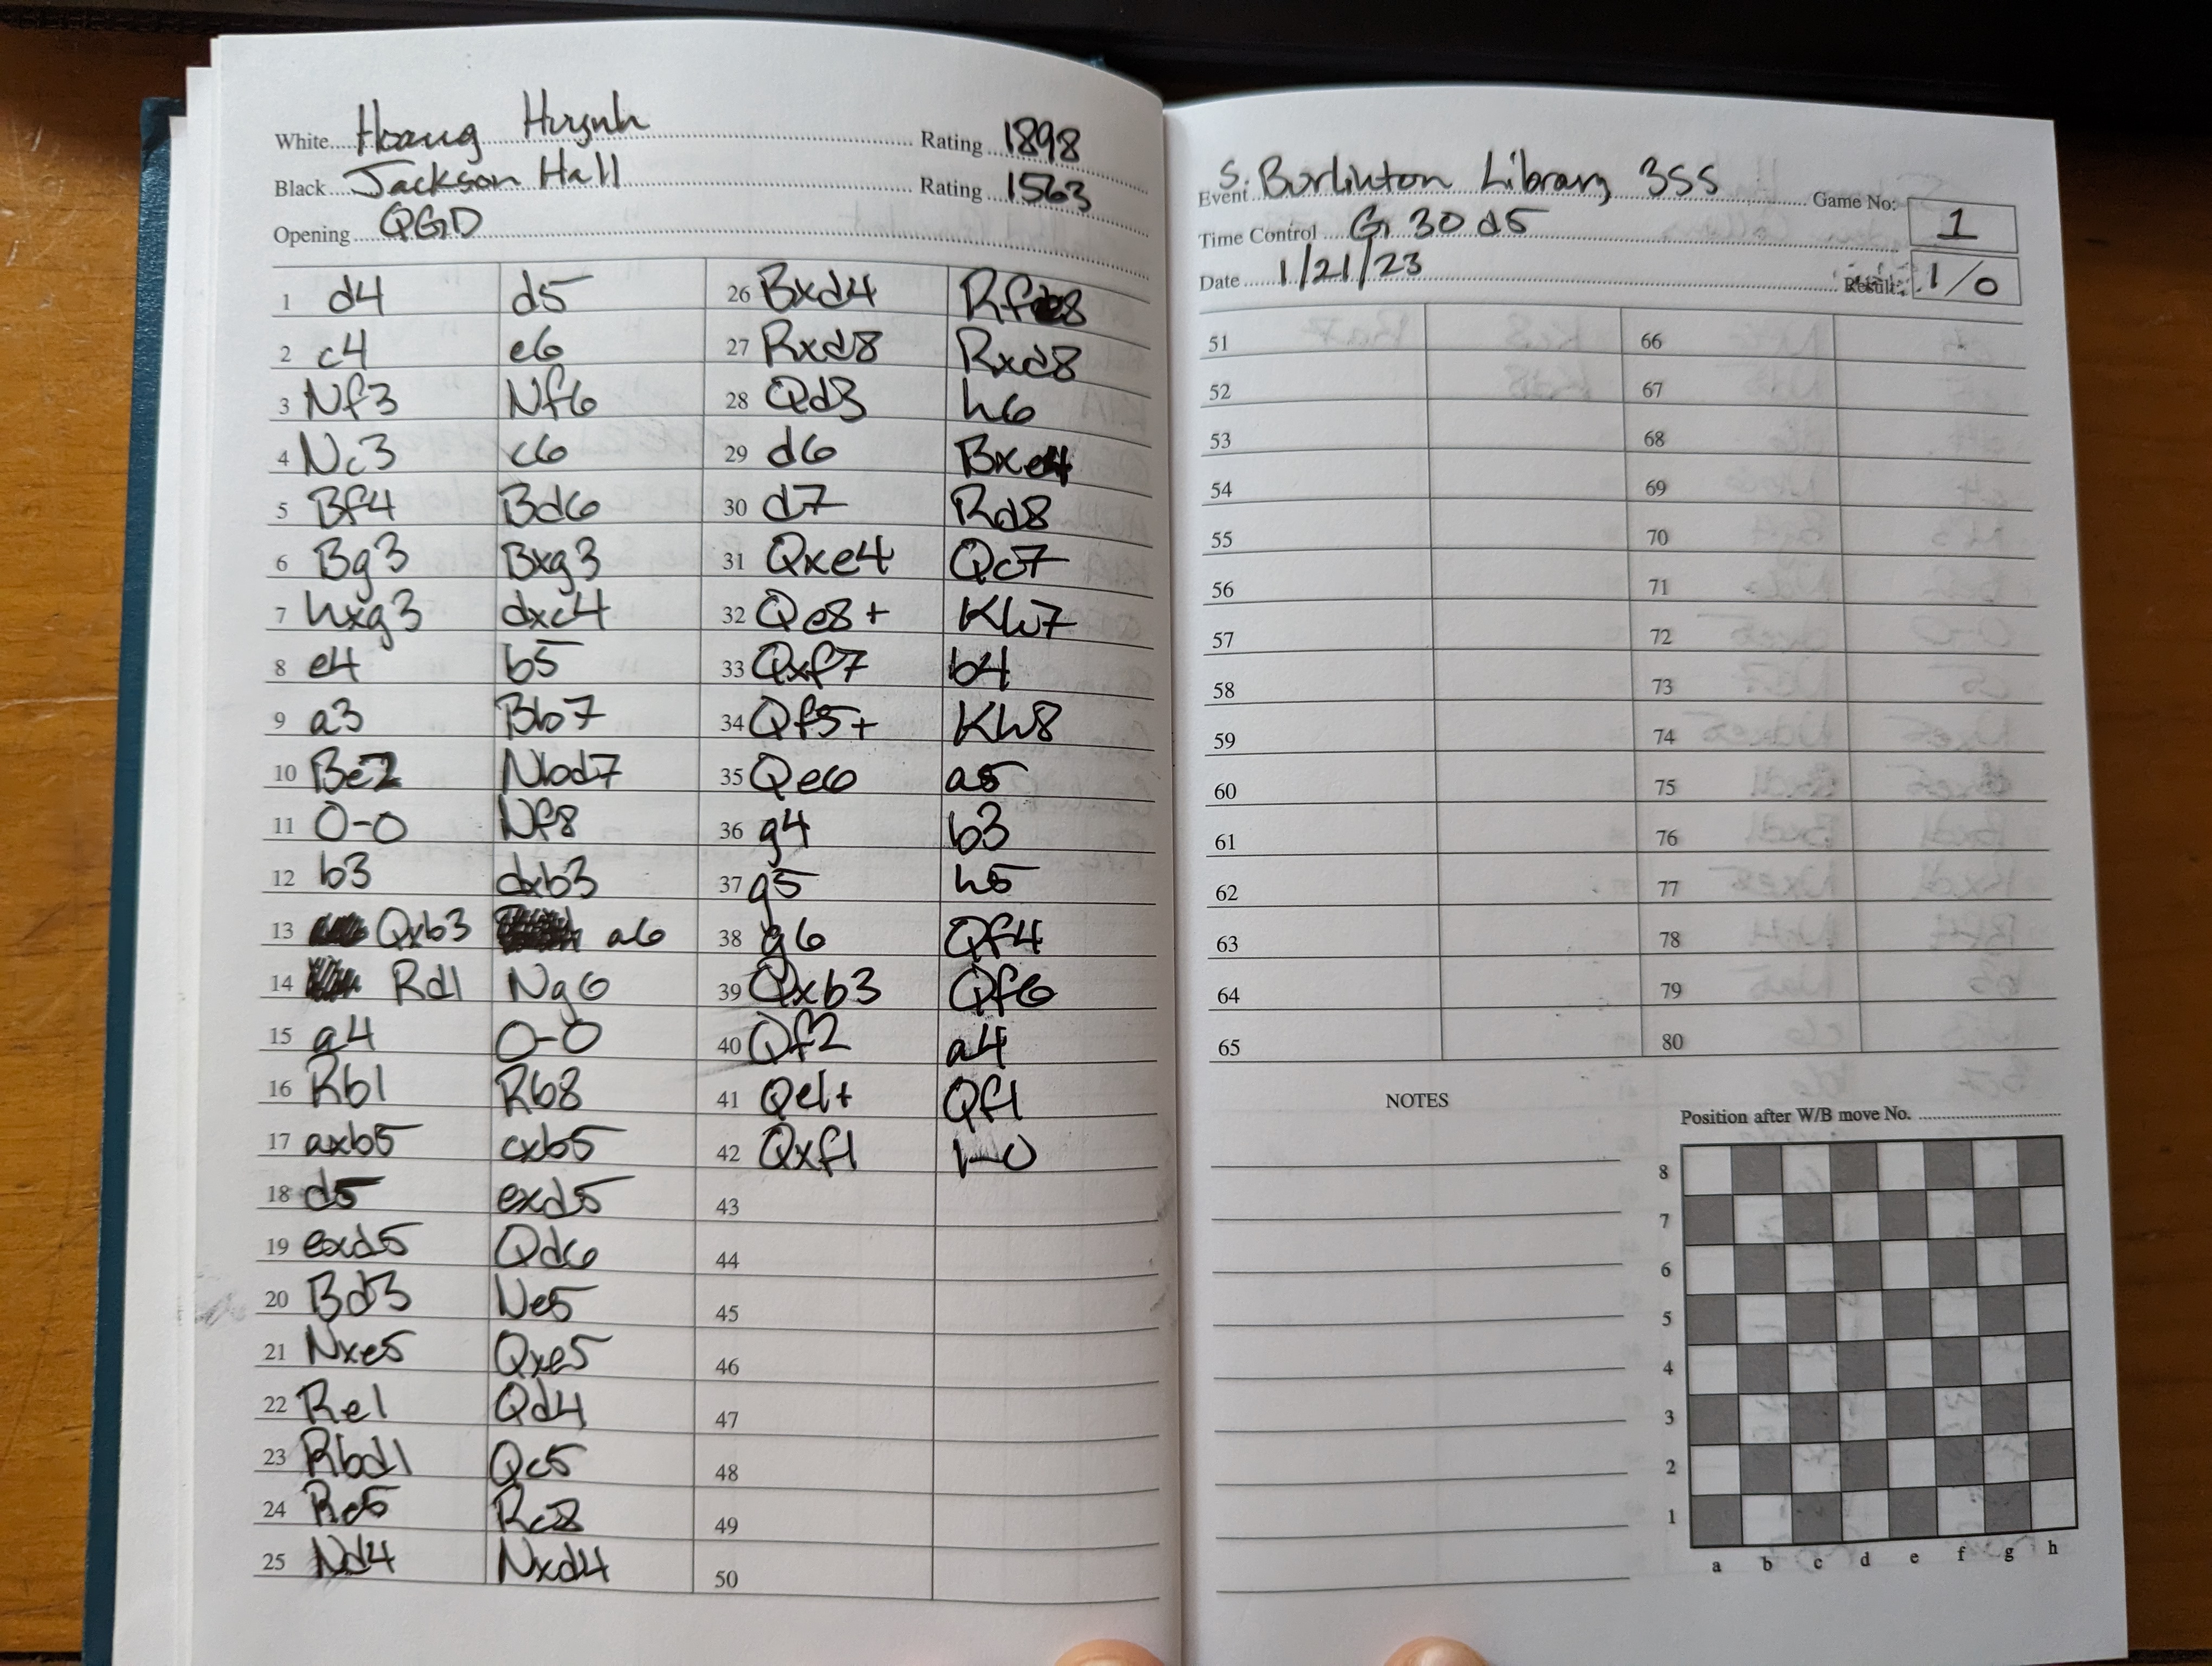 White Hoang Huynh Rating 1898
Black Jackson Hall Rating 1563
Opening QGD
1 d4 d5 26 Bxd4
2 c4 e6 27 Rxd8 Rxd8
3 Nf3 Nf6 28 Qd3 h6
4 Nc3 c6 29 d6 Bxe4
5 Bf4 Bd6 30 d7 Rd8
6 Bg3 Bxg3 31 Qxe4 Qc7
7 hxg3 dxc4 32 Qe8+ Kh7
8 e4 b5 33 Qxf7 b4
9 a3 Bb7 34 Qf5+ Kh8
10 Be2 Nbd7 35 Qe6 a5
11 0-0 Nf8 36 g4 b3
12 b3 dxb3 37 g5 h5
13 Qxb3 a6 38 g6 Qf4
14 Rd1 Ng6 39 Qxb3 Qf6
15 a4 0-0 40 Qf2 a4
16 Rb1 Rb8 41 Qe1+ Qf1
17 axb5 cxb5 42 Qxf1 1-0
18 d5 exd5 43
19 exd5 Qd6 44
20 Bd3 Ne5 45
21 Nxe5 Qxe5 46
22 Re1 Qd4 47
23 Rbd1 Qc5 48
24 Re5 Rc8 49
25 Nd4 Nxd4 50
Event S. Burlinton Library 3SS Game No: 1
Time Control G 30 d5
Date 1/21/23 Result: 1/0
51 66
52 67
53 68
54 69
55 70
56 71
57 72
58 73
59 74
60 75
61 76
62 77
63 78
64 79
65 80
NOTES
Position after W/B move No.
8
7
6
5
4
3
2
1
a b c d e f g h